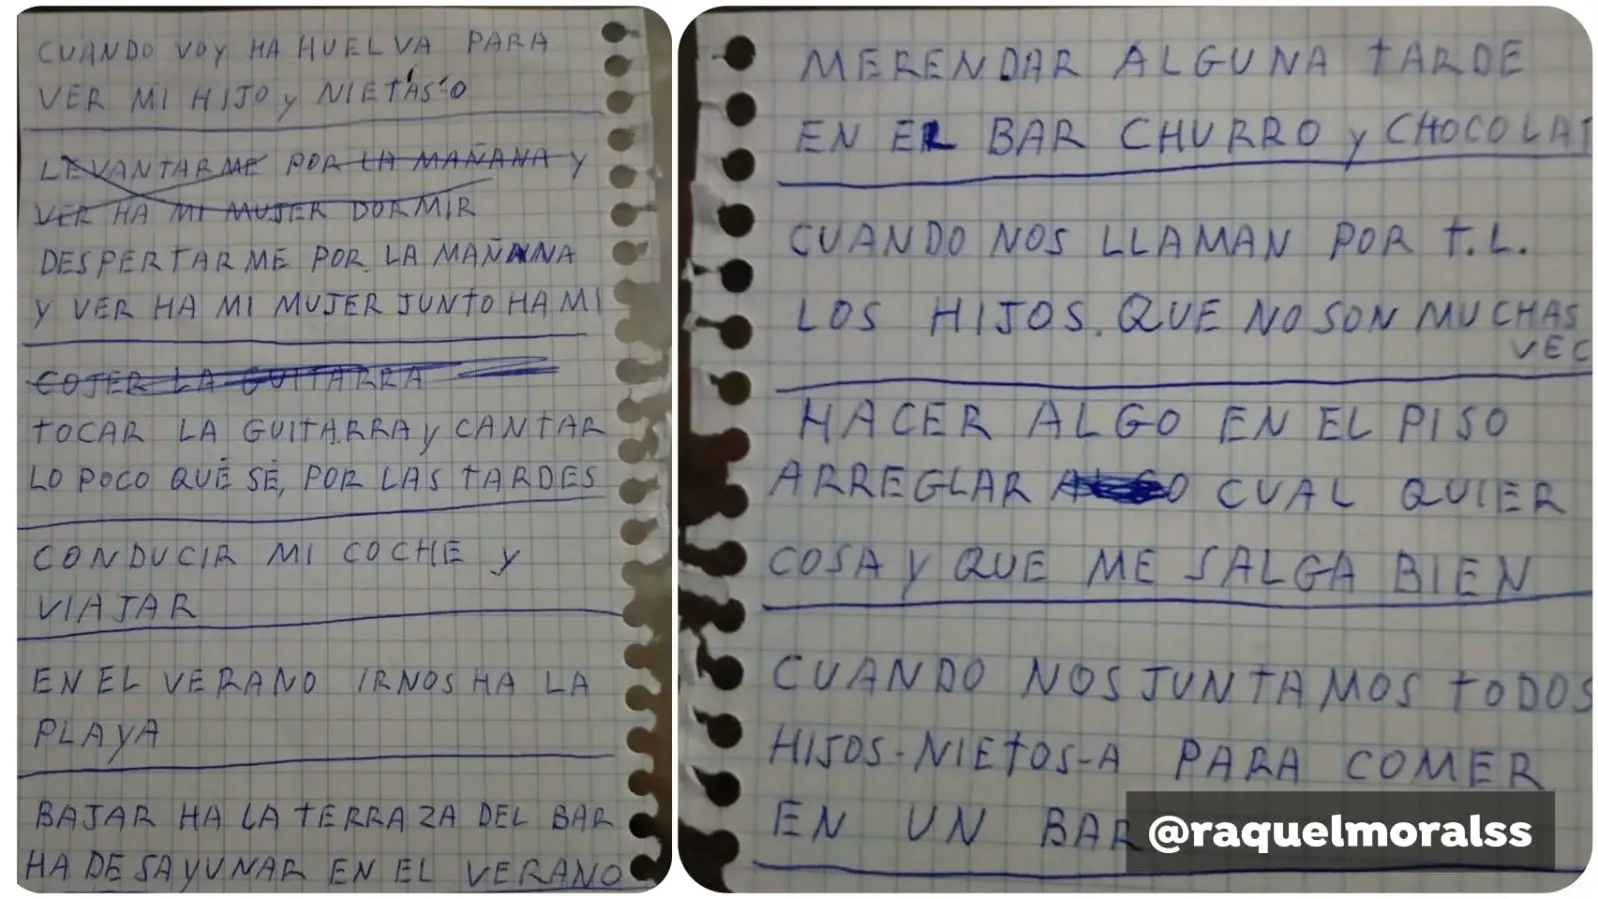 CUANDO VOY HA HUELVA PARA
VER MI HIJO y NIETAS-O
LEVANTARME POR LA MAÑANA Y
VER HA MI MUJER DORMIR
DESPERTARME POR LA MAÑANA
Y VER HA MI MUJER JUNTO HA MI
COJER LA GUITARRA
TOCAR LA GUITARRA y CANTAR
LO POCO QUÉ SÉ, POR LAS TARDES
CONDUCIR MI COCHE y
VIAJAR
EN EL VERANO IRNOS HA LA
PLAYA
BAJAR HA LA TERRAZA DEL BAR
HA DESAYUNAR EN EL VERANO
MERENDAR ALGUNA TARDE
EN EL BAR CHURRO y CHOCOLAT
CUANDO NOS LLAMAN POR T.L.
LOS HIJOS. QUE NO SON MUCHAS
VEC
HACER ALGO EN EL PISO
ARREGLAR ALGO CUAL QUIER
COSA Y QUE ME SALGA BIEN
CUANDO NOS JUNTAMOS TODOS
HIJOS-NIETOS-A PARA COMER
EN UN BAR
@raquelmoralss